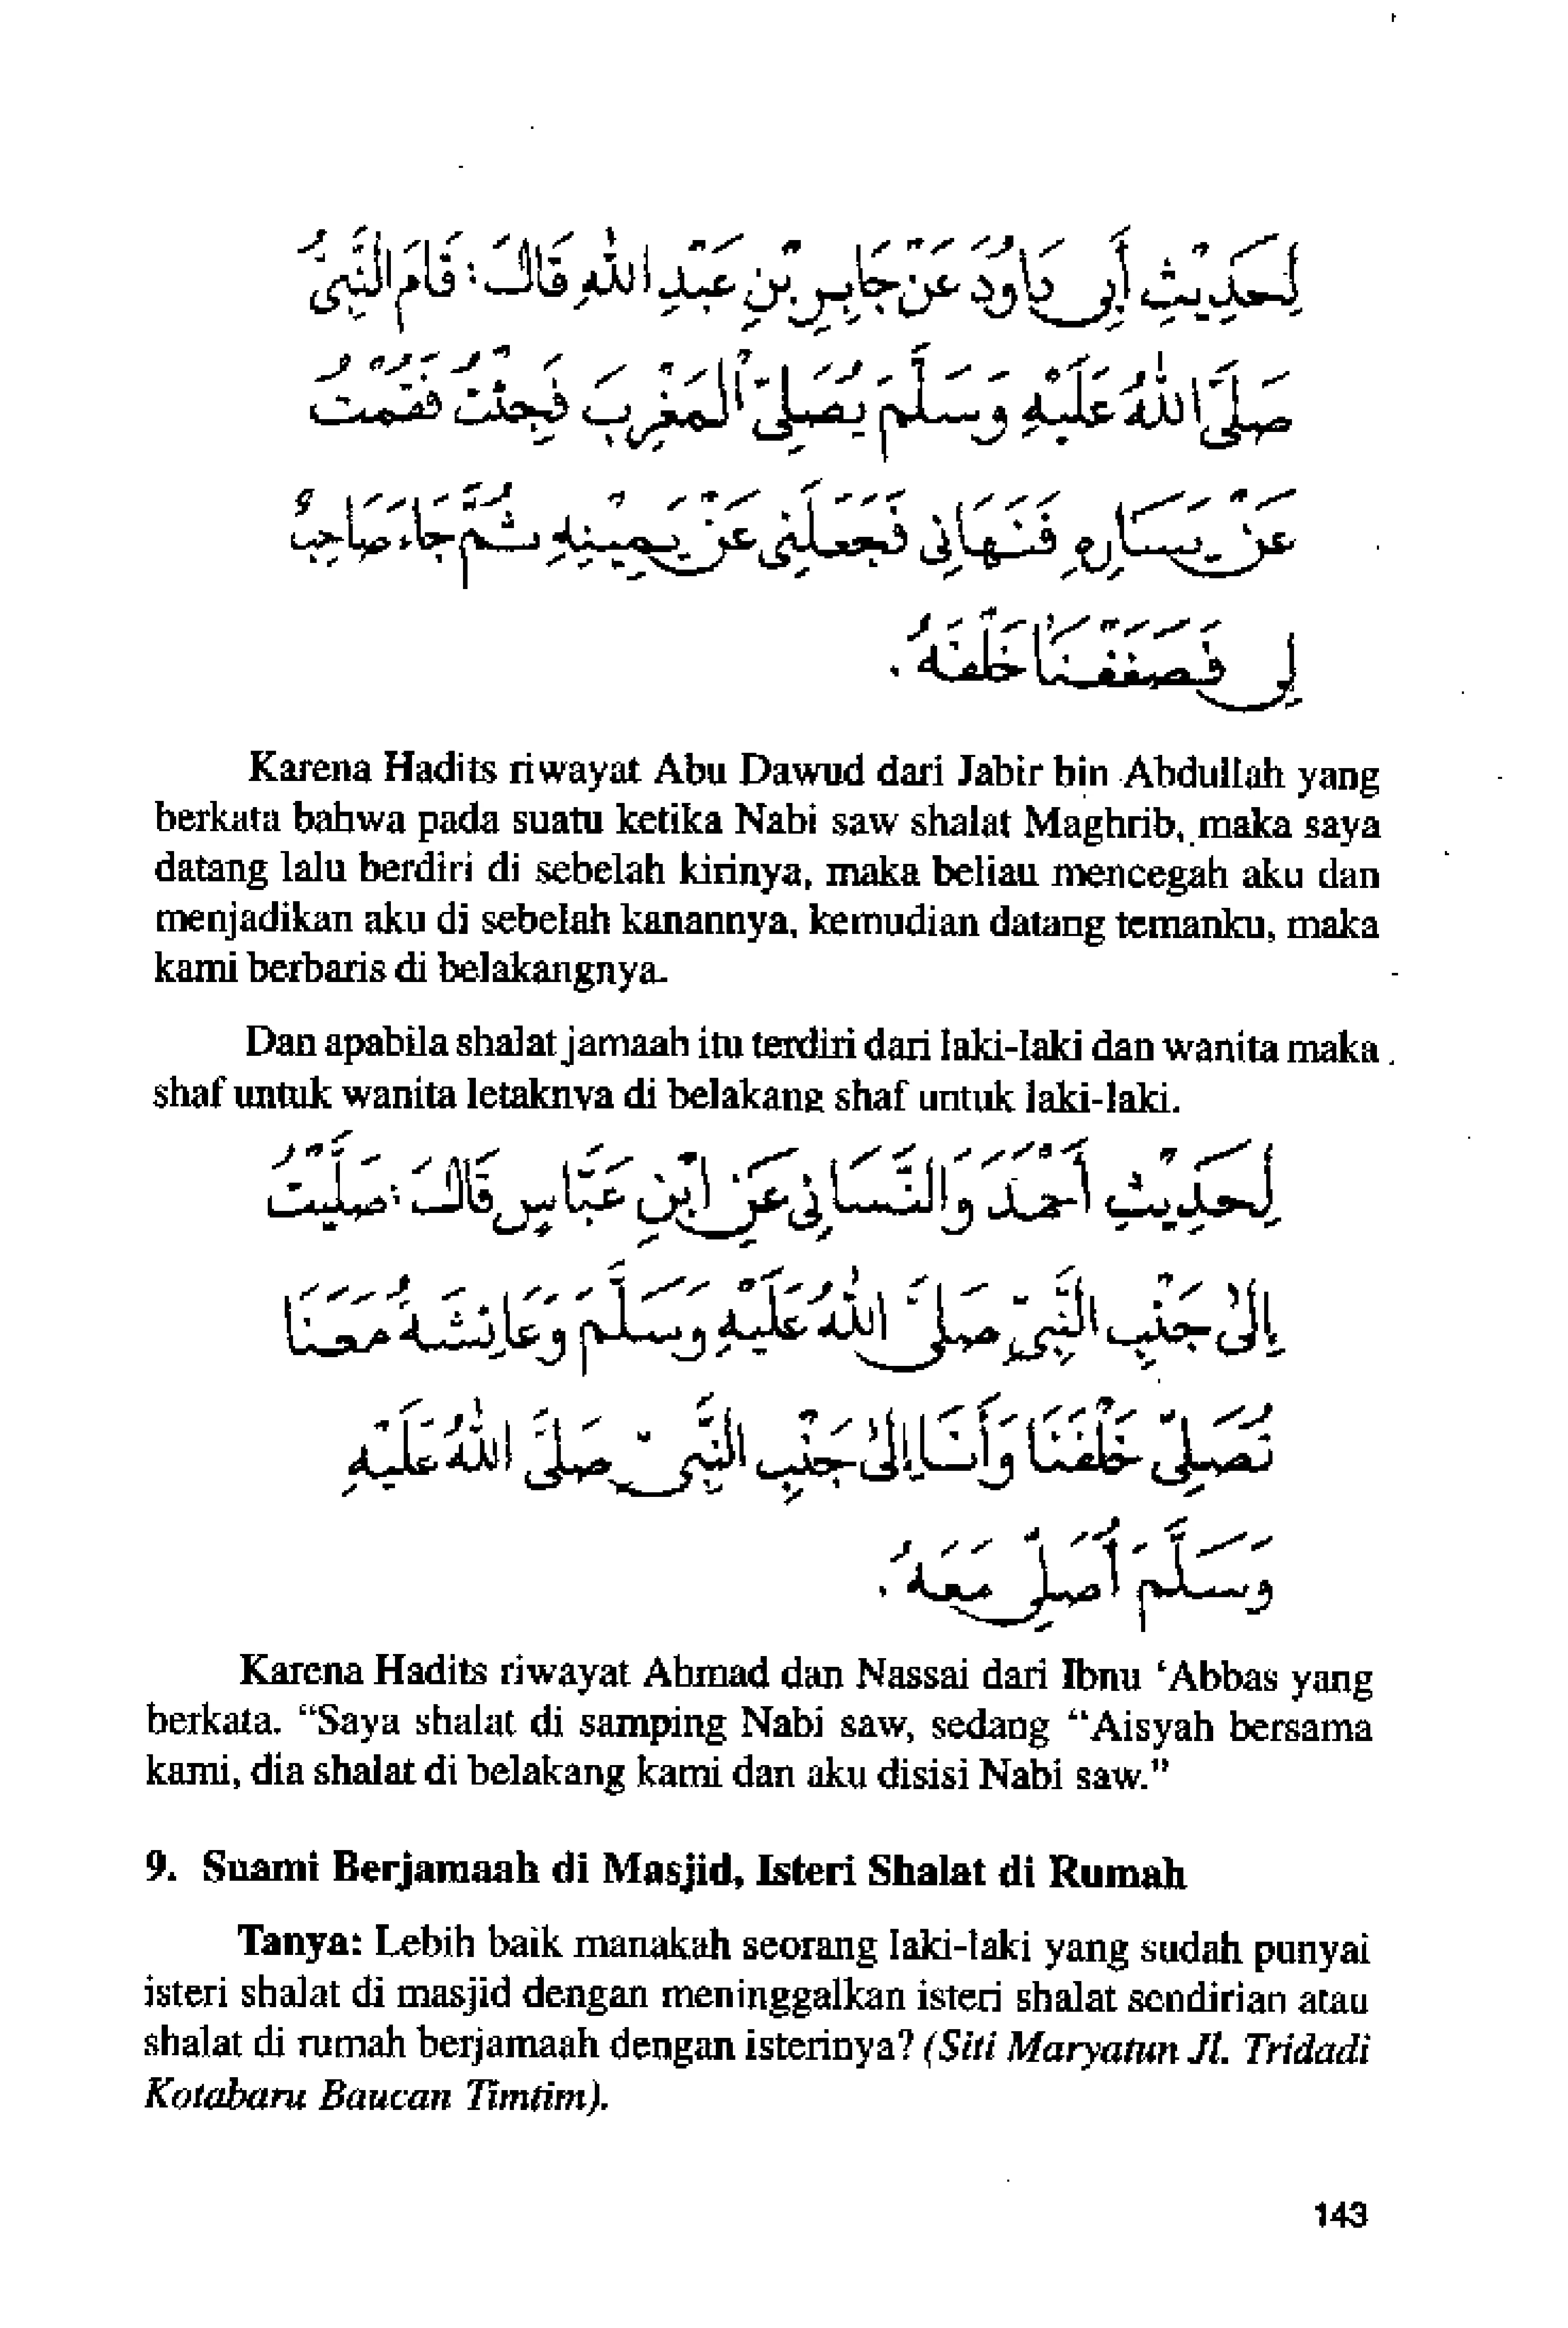 لِحَدِيْثِ أَبِى دَاوُدَ عَنْ جَابِرِ بْنِ عَبْدِ اللهِ قَالَ: قَامَ النَّبِىُّ
صَلَّى اللهُ عَلَيْهِ وَسَلَّمَ يُصَلِّى الْمَغْرِبَ فَجِئْتُ فَقُمْتُ
عَنْ يَسَارِهِ فَنَهَانِى فَجَعَلَنِى عَنْ يَمِيْنِهِ ثُمَّ جَاءَ صَاحِبٌ
لِى فَصَفَفْنَا خَلْفَهُ.
Karena Hadits riwayat Abu Dawud dari Jabir bin Abdullah yang
berkata bahwa pada suatu ketika Nabi saw shalat Maghrib, maka saya
datang lalu berdiri di sebelah kirinya, maka beliau mencegah aku dan
menjadikan aku di sebelah kanannya, kemudian datang temanku, maka
kami berbaris di belakangnya.
Dan apabila shalat jamaah itu terdiri dari laki-laki dan wanita maka
shaf untuk wanita letaknya di belakang shaf untuk laki-laki.
لِحَدِيْثِ أَحْمَدَ وَالنَّسَانِى عَنِ ابْنِ عَبَّاسٍ قَالَ: صَلَّيْتُ
إِلَى جَنْبِ النَّبِىِّ صَلَّى اللهُ عَلَيْهِ وَسَلَّمَ وَعَائِشَةُ مَعَنَا
تُصَلِّى خَلْفَنَا وَأَنَا إِلَى جَنْبِ النَّبِىِّ صَلَّى اللهُ عَلَيْهِ
وَسَلَّمَ أُصَلِّى مَعَهُ.
Karena Hadits riwayat Ahmad dan Nassai dari Ibnu 'Abbas yang
berkata. "Saya shalat di samping Nabi saw, sedang "Aisyah bersama
kami, dia shalat di belakang kami dan aku disisi Nabi saw."
9. Suami Berjamaah di Masjid, Isteri Shalat di Rumah
Tanya: Lebih baik manakah seorang laki-laki yang sudah punyai
isteri shalat di masjid dengan meninggalkan isteri shalat sendirian atau
shalat di rumah berjamaah dengan isterinya? (Siti Maryatun Jl. Tridadi
Kotabaru Baucan Timtim).
143